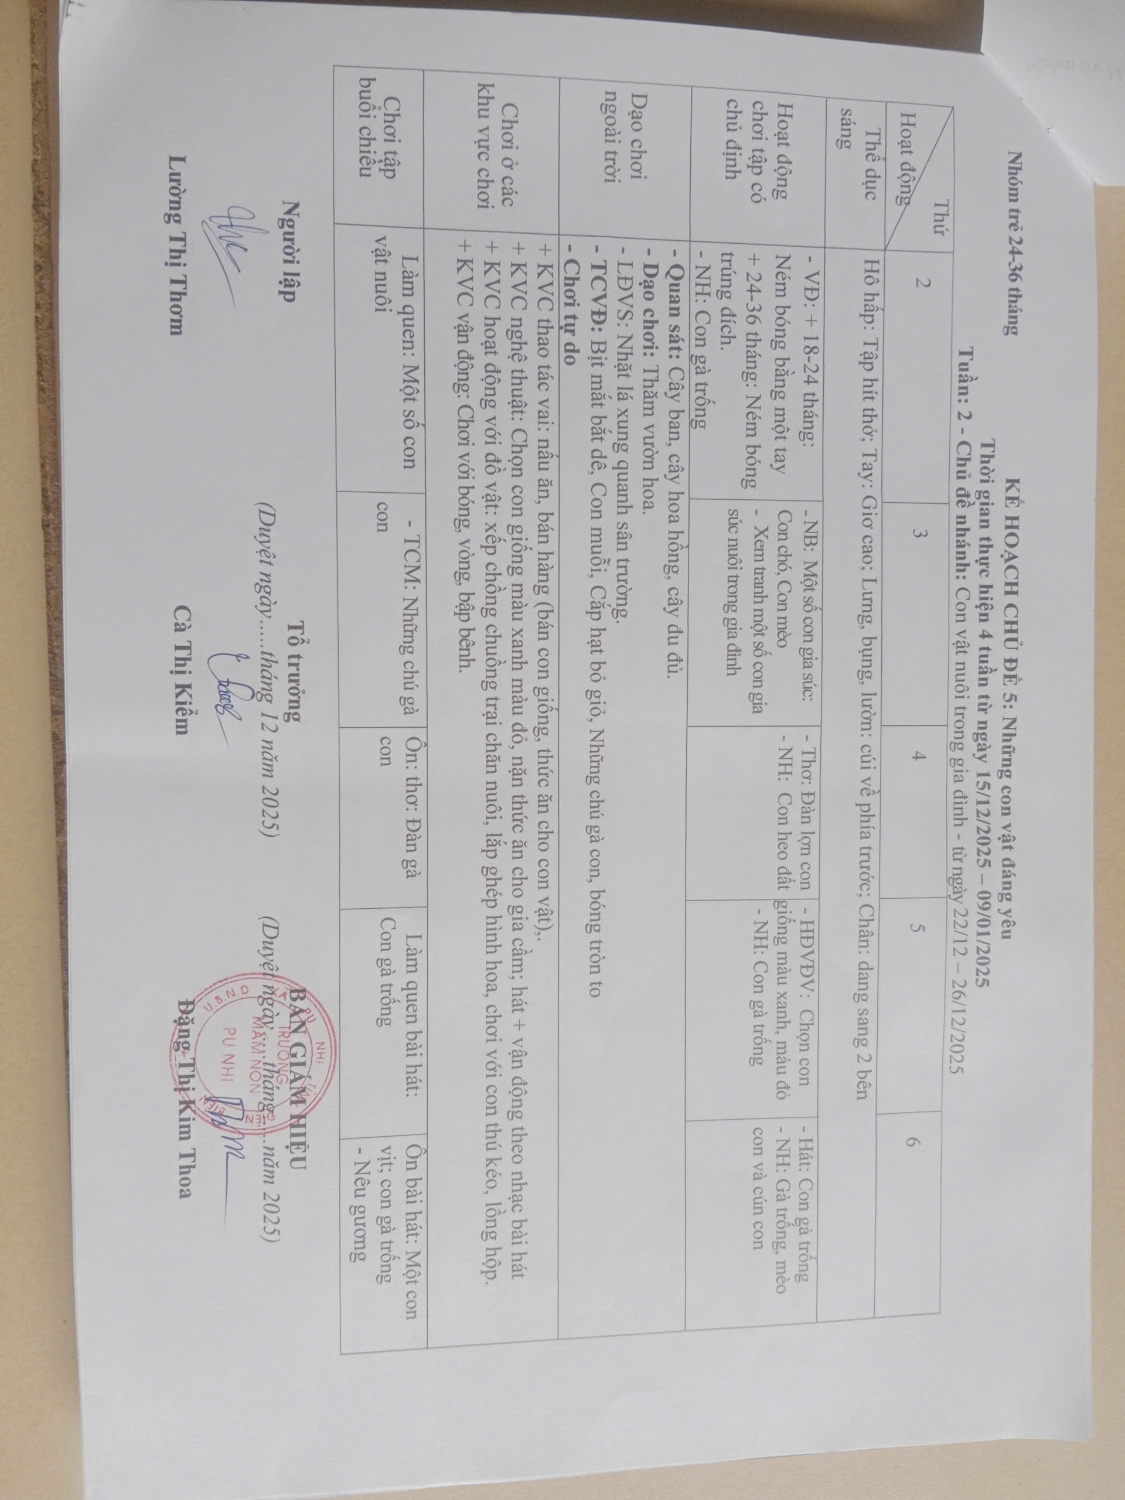 Nhóm trẻ 24-36 tháng
KẾ HOẠCH CHỦ ĐỀ 5: Những con vật đáng yêu
Thời gian thực hiện 4 tuần từ ngày 15/12/2025 – 09/01/2025
Tuần: 2 - Chủ đề nhánh: Con vật nuôi trong gia đình - từ ngày 22/12 – 26/12/2025
Thứ
Hoạt động
2
3
4
5
6
Thể dục
sáng
Hô hấp: Tập hít thở; Tay: Giơ cao; Lưng, bụng, lườn: cúi về phía trước; Chân: dang sang 2 bên
Hoạt động
chơi tập có
chủ định
- VĐ: + 18-24 tháng:
Ném bóng bằng một tay
+ 24-36 tháng: Ném bóng
trúng đích.
- NH: Con gà trống
- NB: Một số con gia súc:
Con chó, Con mèo
- Xem tranh một số con gia
súc nuôi trong gia đình
- Thơ: Đàn lợn con
- NH: Con heo đất
- HĐVĐV: Chọn con
giống màu xanh, màu đỏ
- NH: Con gà trống
- Hát: Con gà trống
- NH: Gà trống, mèo
con và cún con
Dạo chơi
ngoài trời
- Quan sát: Cây ban, cây hoa hồng, cây đu đủ.
- Dạo chơi: Thăm vườn hoa.
- LĐVS: Nhặt lá xung quanh sân trường.
- TCVĐ: Bịt mắt bắt dê, Con muỗi, Cắp hạt bỏ giỏ, Những chú gà con, bóng tròn to
- Chơi tự do
Chơi ở các
khu vực chơi
+ KVC thao tác vai: nấu ăn, bán hàng (bán con giống, thức ăn cho con vật),.
+ KVC nghệ thuật: Chọn con giống màu xanh màu đỏ, nặn thức ăn cho gia cầm; hát + vận động theo nhạc bài hát
+ KVC hoạt động với đồ vật: xếp chồng chuồng trại chăn nuôi, lắp ghép hình hoa, chơi với con thú kéo, lồng hộp.
+ KVC vận động: Chơi với bóng, vòng, bập bênh.
Chơi tập
buổi chiều
Làm quen: Một số con
vật nuôi
- TCM: Những chú gà
con
Ôn: thơ: Đàn gà
con
Làm quen bài hát:
Con gà trống
Ôn bài hát: Một con
vịt; con gà trống
- Nêu gương
Người lập
Lường Thị Thơm
Tổ trưởng
(Duyệt ngày......tháng 12 năm 2025)
Cà Thị Kiểm
BAN GIÁM HIỆU
(Duyệt ngày....tháng.....năm 2025)
TRƯỜNG
MẦM NON
PU NHI
Đặng Thị Kim Thoa